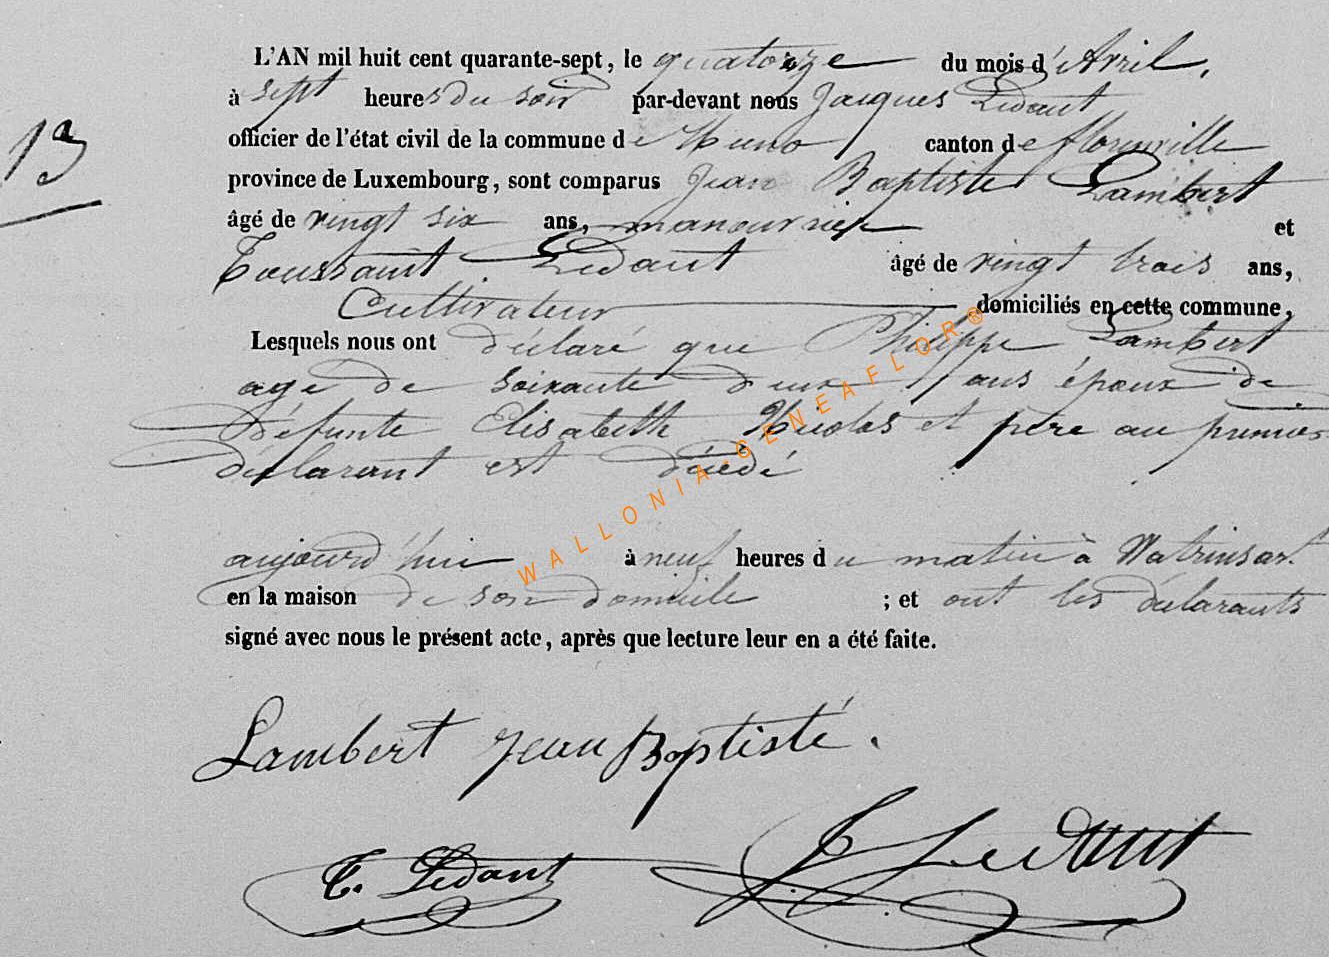 13
L'AN mil huit cent quarante-sept, le quatorze du mois d'Avril,
à sept heures du soir par-devant nous Jacques Ledant
officier de l'état civil de la commune de Muno canton de florenville
province de Luxembourg, sont comparus Jean Baptiste Lambert
âgé de vingt six ans, manouvrier et
Toussaint Ledant âgé de vingt trois ans,
Cultivateur domiciliés en cette commune,
Lesquels nous ont déclaré que Philippe Lambert
agé de soixante deux ans époux de
Défunte Elisabeth Nicolas et père au premier
déclarant est décédé
aujourd'hui à neuf heures du matin à Watrinsart
en la maison de son domicile ; et ont les déclarants
signé avec nous le présent acte, après que lecture leur en a été faite.
Lambert Jean Baptiste.
T. Ledant J Ledant
WALLONIA.GENEAFLOR®